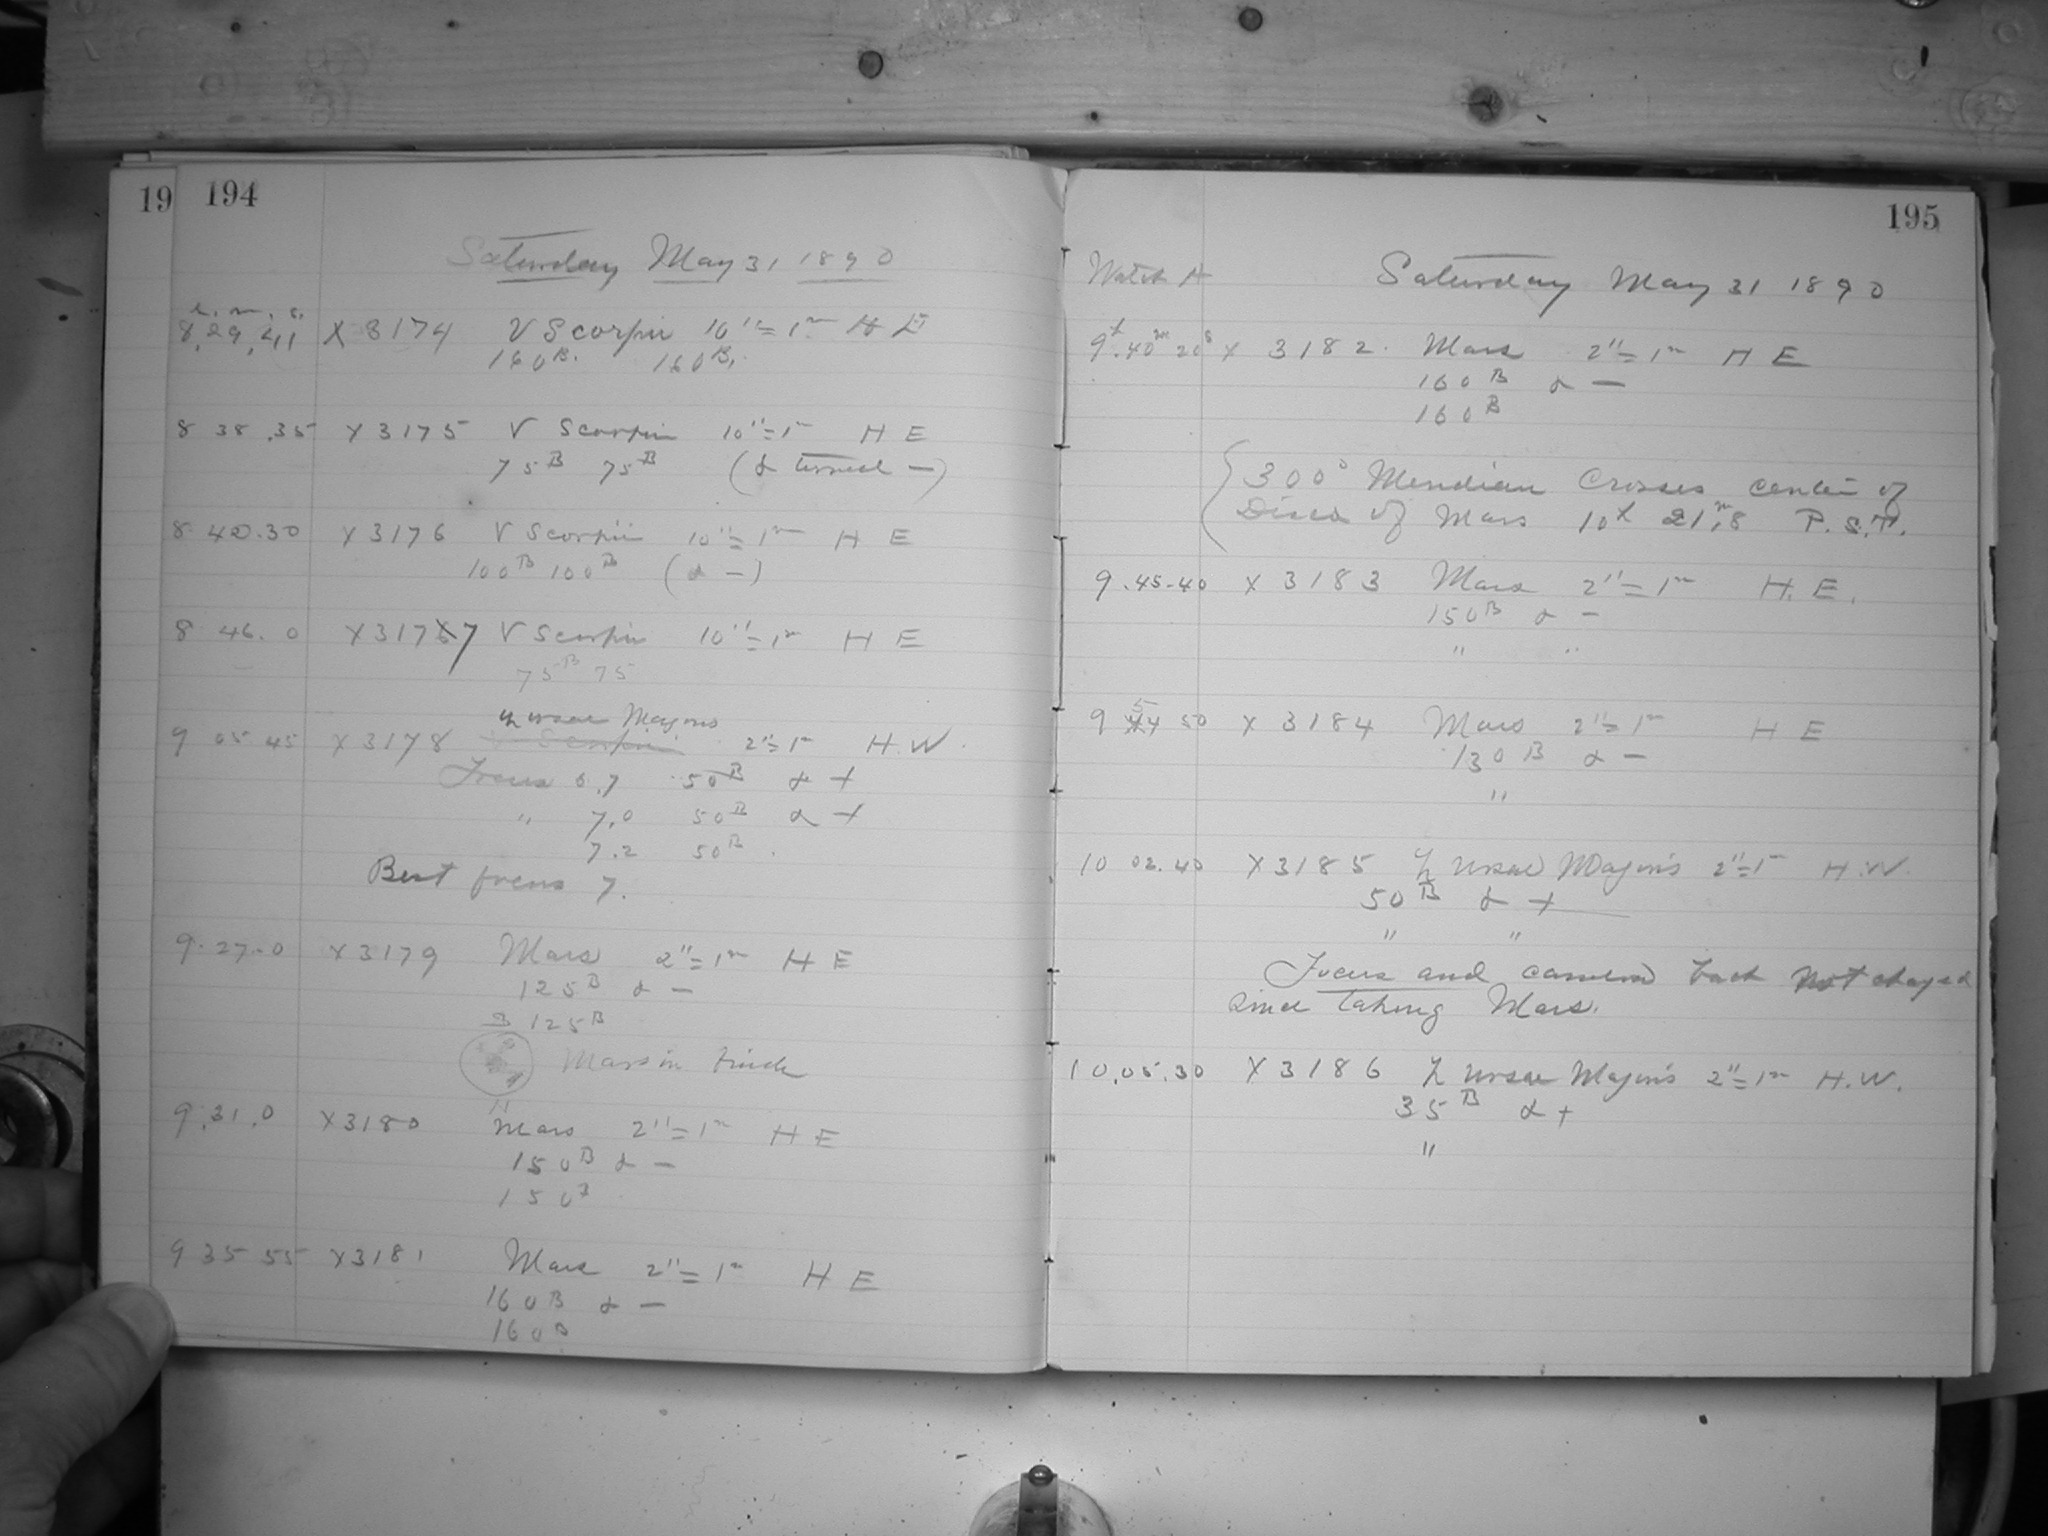 19 194
Saturday May 31 1890
h. m. s.
8.29.41 X 3174 V Scorpii 10"=1m H E
160B. 160B.
8 38.35 X 3175 V Scorpii 10"=1m H E
75B 75B (α turned —)
8.40.30 X 3176 V Scorpii 10"=1m H E
100B 100B (α —)
8 46.0 X 3177 V Scorpii 10"=1m H E
75B 75
ζ ursae Majoris
9 05 45 X 3178 V Scorpii 2"=1m H.W.
Focus 6.7 50B α +
" 7.0 50B α +
7.2 50B.
Best focus 7.
9.27.0 X 3179 Mars 2"=1m H E
125B α —
125B
Mars in
9.31.0 X 3180 Mars 2"=1m H E
150B α —
150B
9 35 55 X 3181 Mars 2"=1m H E
160B α —
160B
195
Watch H Saturday May 31 1890
9h.40m 20s X 3182. Mars 2"=1m H E
160B α —
160B
{300° Meridian Crosses center of
Disc of Mars 10h 21m.8 P.S.T.
9.45.40 X 3183 Mars 2"=1m H.E.
150B α —
" "
9 54 50 X 3184 Mars 2"=1m H E
130B α —
"
10 02.40 X 3185 ζ ursae Majoris 2"=1m H.W.
50B α +
" "
Focus and camera back not changed
since taking Mars.
10.05.30 X 3186 ζ ursae Majoris 2"=1m H.W.
35B α +
"